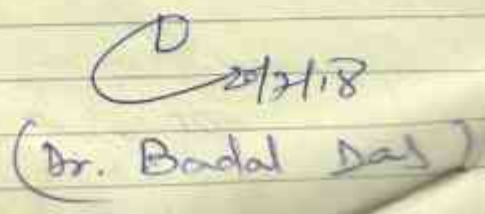 20/2/18
(Dr. Badal Das)